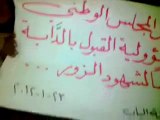 المجلس الوطني
ؤولية القبول بالدابة
الشهود الزور ...
٢٠١٢-١-٢٣